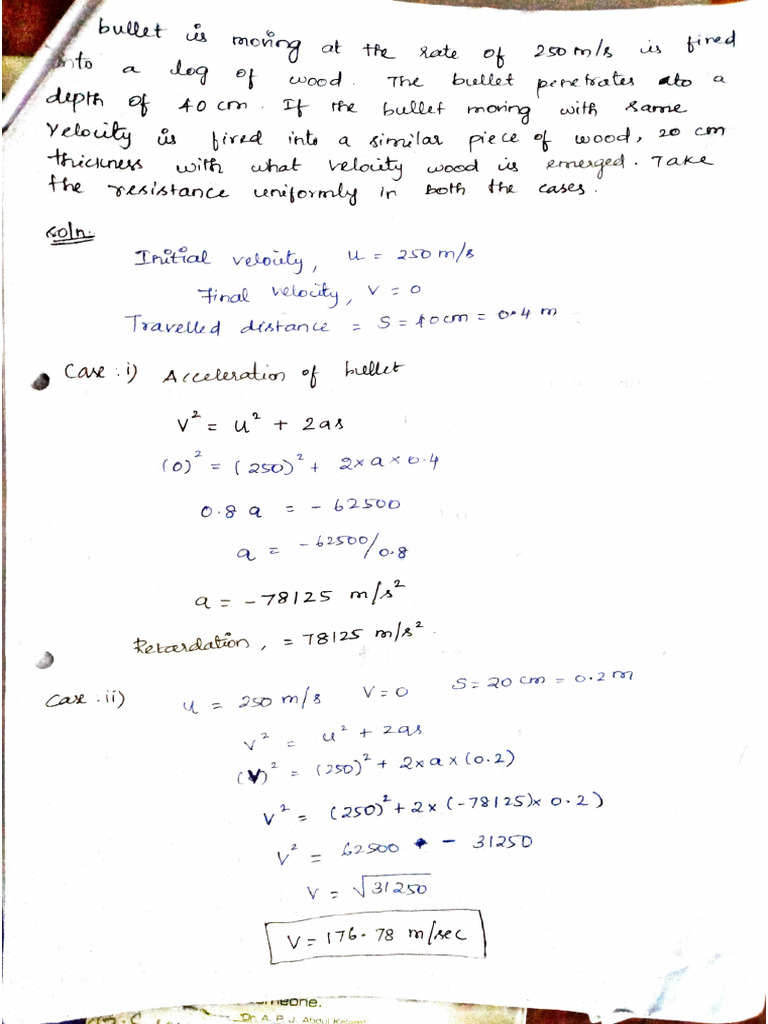 bullet is moving at the rate of 250 m/s is fired
into a log of wood. The bullet penetrates to a
depth of 40 cm. If the bullet moving with same
velocity is fired into a similar piece of wood, 20 cm
thickness with what velocity wood is emerged. Take
the resistance uniformly in both the cases.
soln.
Initial velocity, u = 250 m/s
Final velocity, v = 0
Travelled distance = S = 40cm = 0.4 m
Case: i) Acceleration of bullet
V² = u² + 2as
(0)² = (250)² + 2×a×0.4
0.8 a = - 62500
a = -62500/0.8
a = -78125 m/s²
Retardation, = 78125 m/s².
Case. ii) u = 250 m/s V=0 S=20 cm = 0.2 m
V² = u² + 2as
(V)² = (250)² + 2×a×(0.2)
V² = (250)² + 2×(-78125)×0.2)
V² = 62500 - 31250
V = √31250
V = 176.78 m/sec
one.
Dr. A. P. J. Abdul Kalam